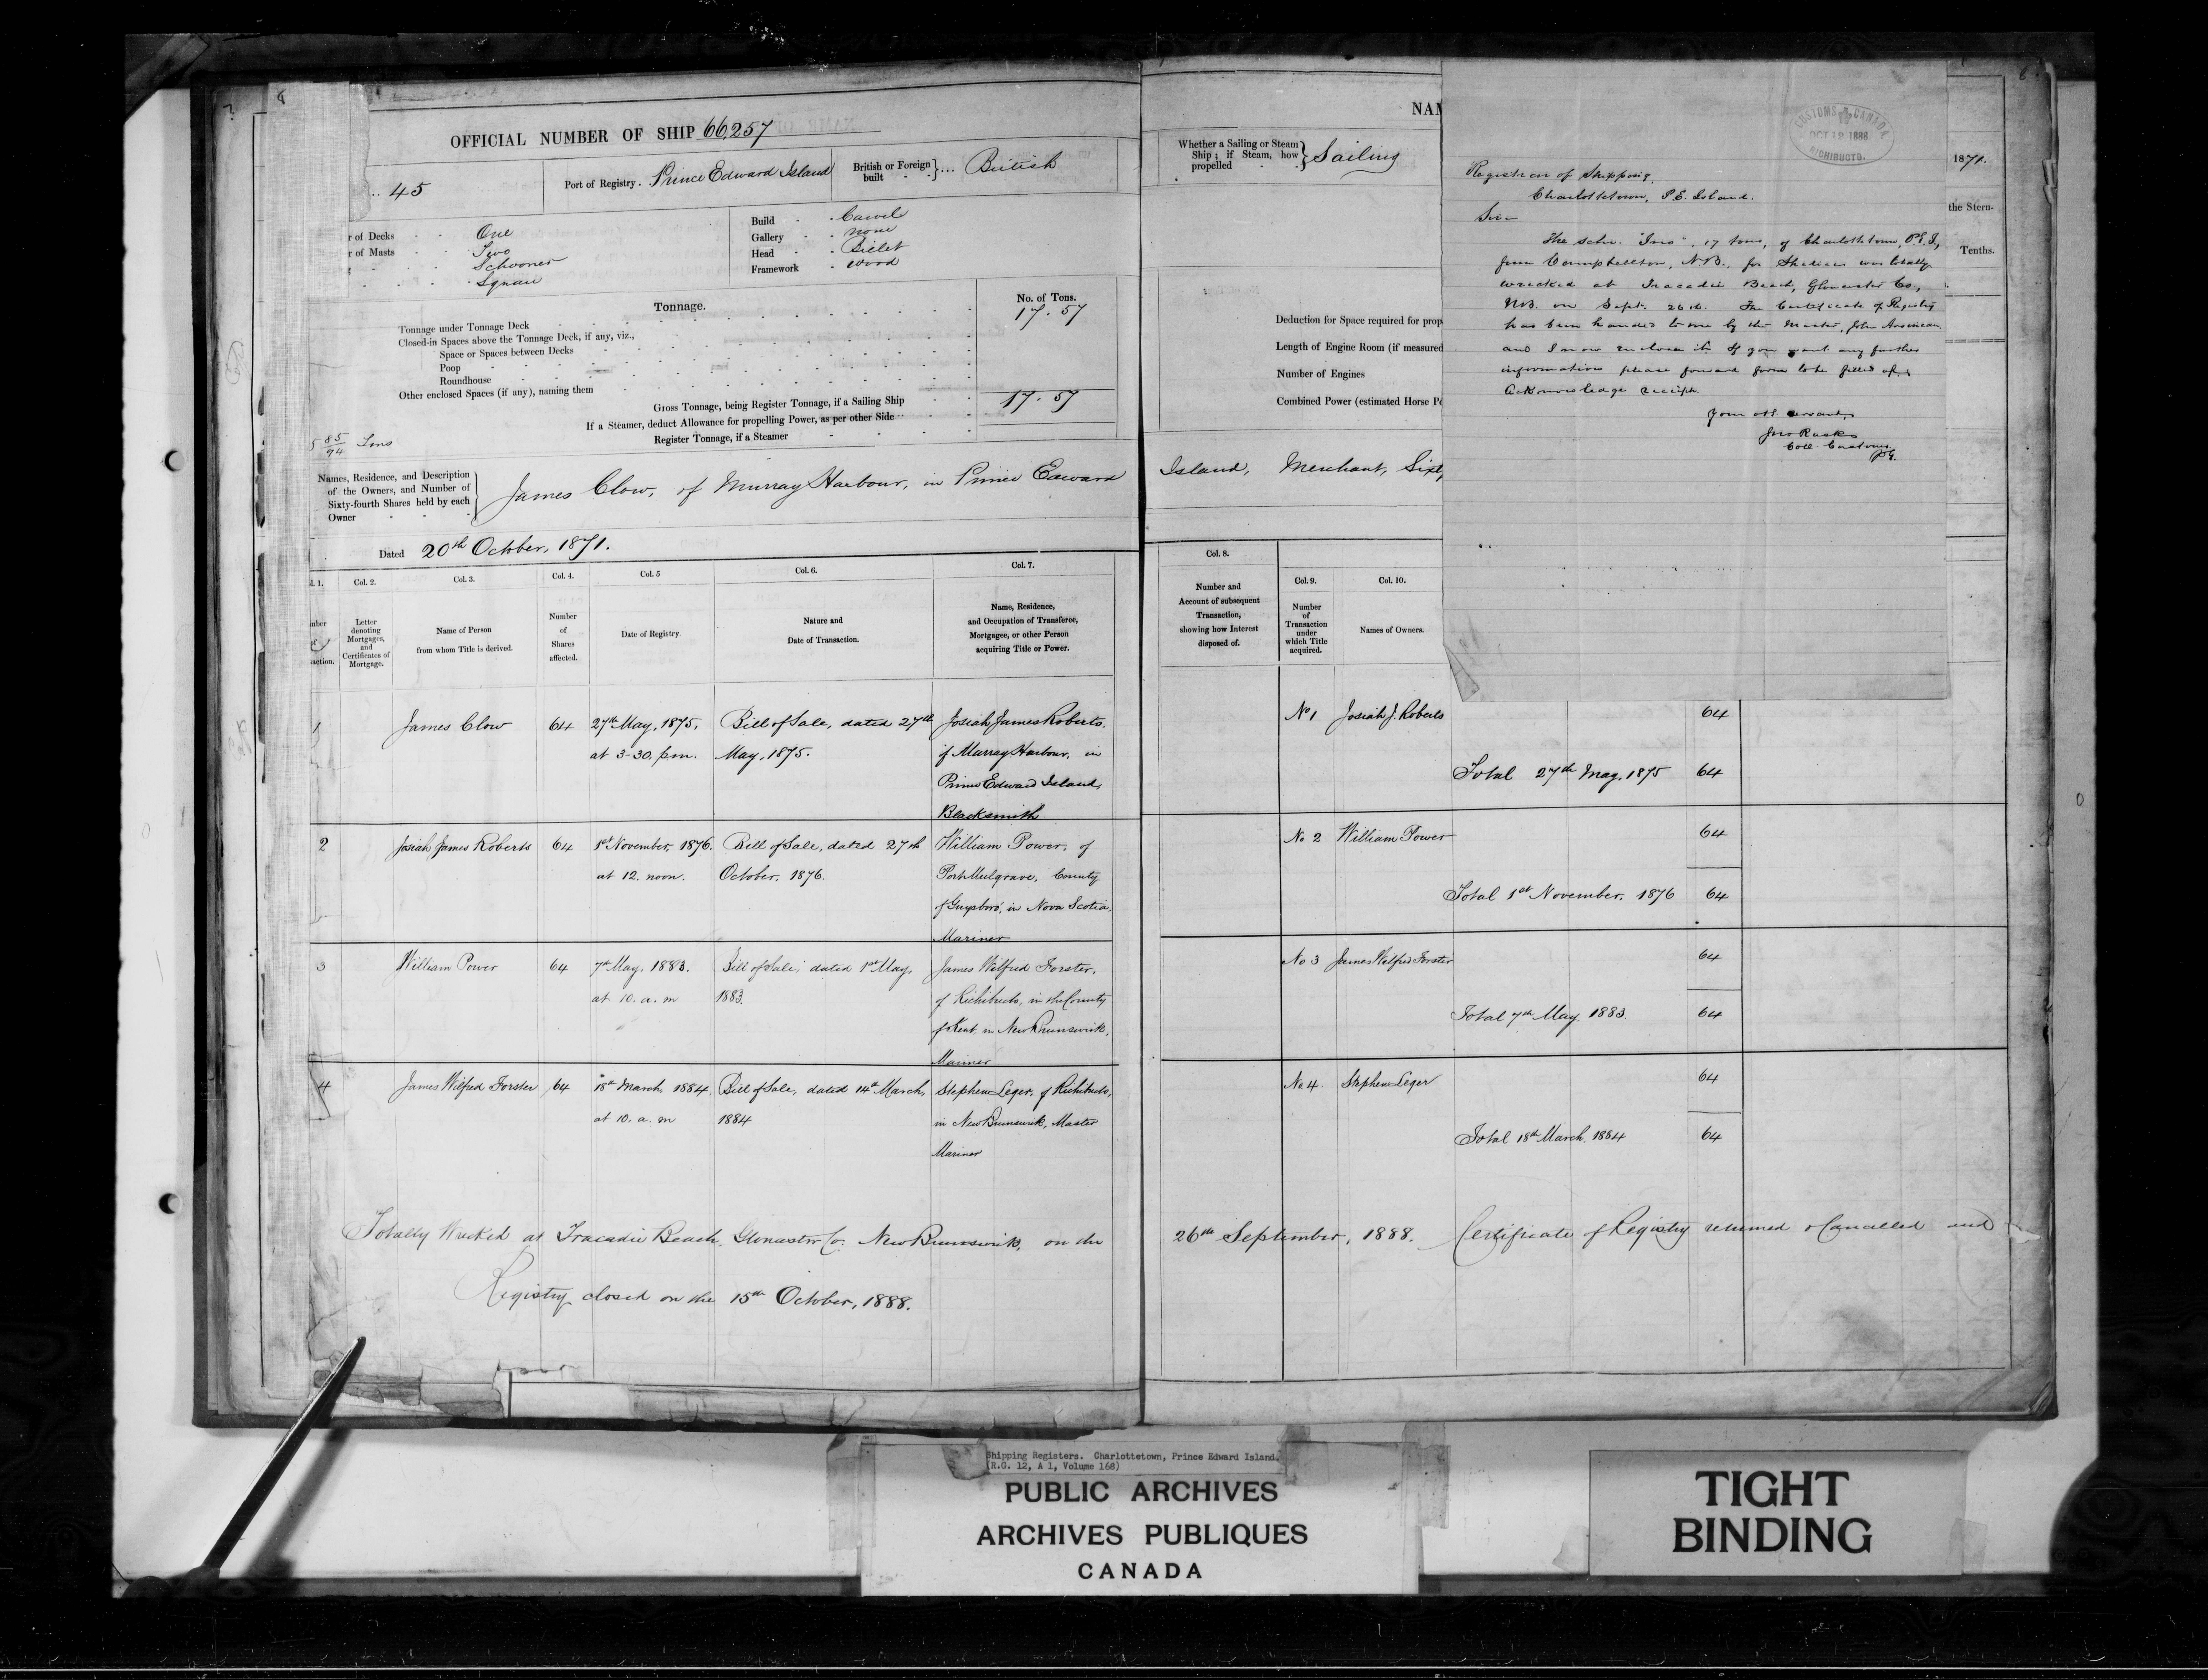 OFFICIAL NUMBER OF SHIP 66,257
45
Port of Registry . Prince Edward Island
British or Foreign built } ... British
r of Decks One
r of Masts Two
Schooner
Square
Build Carvel
Gallery none
Head Billet
Framework wood
Tonnage.
No. of Tons.
Tonnage under Tonnage Deck 17.57
Closed-in Spaces above the Tonnage Deck, if any, viz.,
Space or Spaces between Decks
Poop
Roundhouse
Other enclosed Spaces (if any), naming them
Gross Tonnage, being Register Tonnage, if a Sailing Ship 17.57
If a Steamer, deduct Allowance for propelling Power, as per other Side
Register Tonnage, if a Steamer
85/94 Tons
Names, Residence, and Description
of the Owners, and Number of
Sixty-fourth Shares held by each
Owner
James Clow, of Murray Harbour, in Prince Edward
Dated 20th October, 1871.
Col. 2.
Col. 3.
Col. 4.
Col. 5
Col. 6.
Col. 7.
Letter denoting Mortgages, and Certificates of Mortgage.
Name of Person from whom Title is derived.
Number of Shares affected.
Date of Registry.
Nature and Date of Transaction.
Name, Residence, and Occupation of Transferee, Mortgagee, or other Person acquiring Title or Power.
1 James Clow 64 27th May, 1875, Bill of Sale, dated 27th Josiah James Roberts.
at 3-30, p.m. May, 1875. of Murray Harbour, in
Prince Edward Island,
Blacksmith
2 Josiah James Roberts 64 1st November, 1876. Bill of Sale, dated 27th William Power, of
at 12. noon. October, 1876. Port Mulgrave, County
of Guysboro', in Nova Scotia,
Mariner
3 William Power 64 7th May, 1883. Bill of Sale, dated 1st May, James Wilfred Forster,
at 10. a. m 1883. of Richibucto, in the County
of Kent in New Brunswick,
Mariner
4 James Wilfred Forster 64 18th March 1884, Bill of Sale, dated 14th March, Stephen Leger, of Richibucto,
at 10. a. m 1884 in New Brunswick, Master
Mariner
Totally Wrecked at Tracadie Beach, Gloucester Co. New Brunswick, on the
Registry closed on the 15th October, 1888.
NAM
Whether a Sailing or Steam
Ship ; if Steam, how
propelled } Sailing
Deduction for Space required for prop
Length of Engine Room (if measured
Number of Engines
Combined Power (estimated Horse Po
Island, Merchant, Sixty
CUSTOMS CANADA
OCT 12 1888
RICHIBUCTO.
Registrar of Shipping,
Charlottetown, P.E. Island.
Sir
The schr. "Ino", 17 tons, of Charlottetown, P.E.I.,
from Campbellton, N.B., for Shediac was totally
wrecked at Tracadie Beach, Gloucester Co.,
N.B. on Sept. 26th. The Certificate of Registry
has been handed to me by the Master, John
and I now enclose it. If you want any further
information please forward form to be filled up.
Acknowledge receipt.
Your obt servant,
Coll. Customs
1871.
the Stern.
Tenths.
Col. 8.
Number and
Account of subsequent
Transaction,
showing how Interest
disposed of.
Col. 9.
Number of Transaction under which Title acquired.
Col. 10.
Names of Owners.
No 1 Josiah J. Roberts 64
Total 27th May, 1875 64
No 2 William Power 64
Total 1st November, 1876 64
No 3 James Wilfred Forster 64
Total 7th May 1883. 64
No 4 Stephen Leger 64
Total 18th March, 1884 64
26th September, 1888. Certificate of Registry returned & Cancelled and
Shipping Registers. Charlottetown, Prince Edward Island.
(R.G. 12, A 1, Volume 168)
PUBLIC ARCHIVES
ARCHIVES PUBLIQUES
CANADA
TIGHT
BINDING